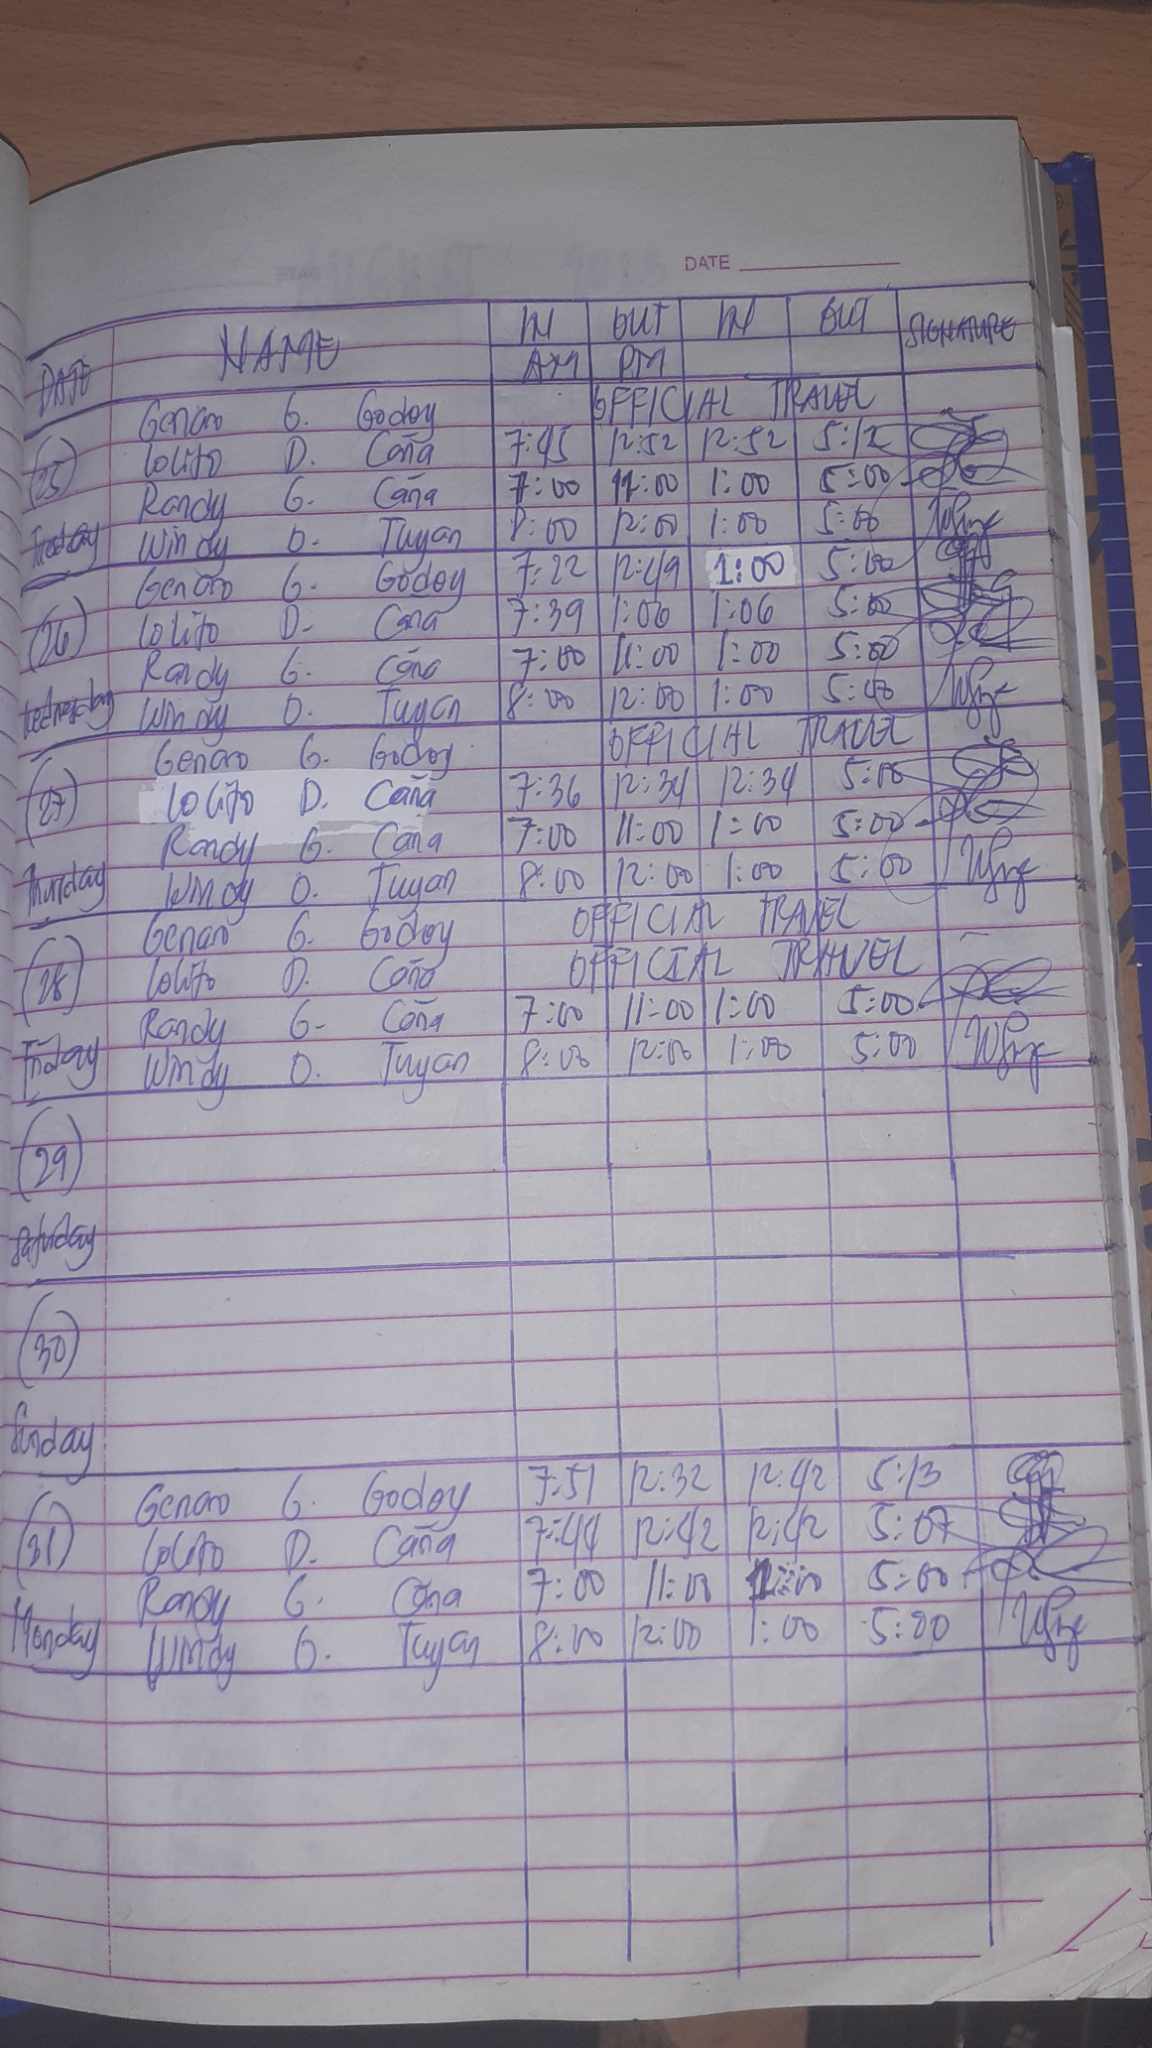 DATE
DATE NAME IN OUT IN OUT SIGNATURE
AM PM
Genaro G. Godoy OFFICIAL TRAVEL
(25) Lolito D. Caña 7:45 12:52 12:52 5:12
Randy G. Caña 7:00 11:00 1:00 5:00
Tuesday Windy O. Tuyan 8:00 12:00 1:00 5:00
Genaro G. Godoy 7:22 12:49 1:00 5:00
(26) Lolito D. Caña 7:39 1:06 1:06 5:00
Randy G. Caña 7:00 11:00 1:00 5:00
Wednesday Windy O. Tuyan 8:00 12:00 1:00 5:00
Genaro G. Godoy OFFICIAL TRAVEL
(27) Lolito D. Caña 7:36 12:34 12:34 5:00
Randy G. Caña 7:00 11:00 1:00 5:00
Thursday Windy O. Tuyan 8:00 12:00 1:00 5:00
Genaro G. Godoy OFFICIAL TRAVEL
(28) Lolito D. Caña OFFICIAL TRAVEL
Randy G. Caña 7:00 11:00 1:00 5:00
Friday Windy O. Tuyan 8:00 12:00 1:00 5:00
(29)
Saturday
(30)
Sunday
Genaro G. Godoy 7:51 12:32 12:42 5:13
(31) Lolito D. Caña 7:44 12:42 12:42 5:07
Randy G. Caña 7:00 11:00 5:00
Monday Windy O. Tuyan 8:00 12:00 1:00 5:00